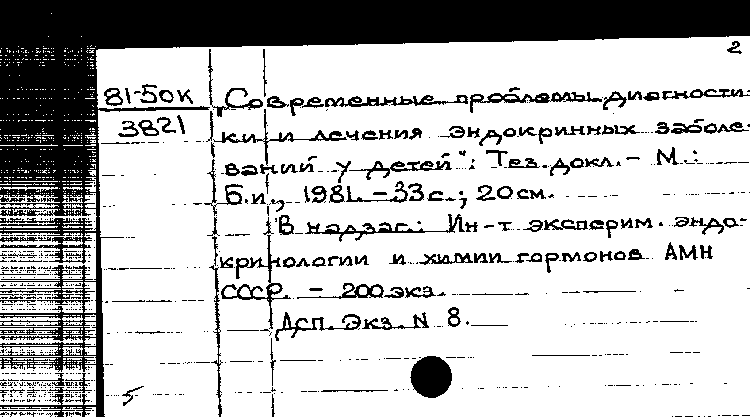 2
81-50к
3821
"Современные проблемы диагности-
ки и лечения эндокринных заболе-
ваний у детей": Тез. докл. - М.:
Б.и., 1981. - 33 с.; 20 см.
В надзаг.: Ин-т эксперим. эндо-
кринологии и химии гормонов АМН
СССР. - 200 экз.
Дсп. Экз. N 8.
5